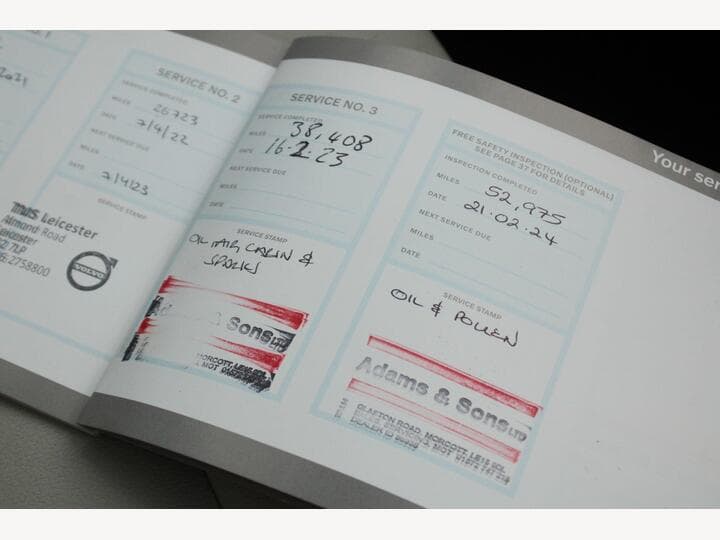 2021
SERVICE NO. 2
SERVICE COMPLETED
MILES 26723
DATE 7/4/22
NEXT SERVICE DUE
MILES
DATE 7/4/23
SERVICE STAMP
Leicester
Road
Leicester
7LP
2758800
VOLVO
SERVICE NO. 3
SERVICE COMPLETED
MILES 38,408
DATE 16.2.23
NEXT SERVICE DUE
MILES
DATE
SERVICE STAMP
OIL AIR CABIN &
SPARKS
Adams & Sons LTD
MORCOTT, LE15 9DL
MOT
Your ser
FREE SAFETY INSPECTION (OPTIONAL)
SEE PAGE 37 FOR DETAILS
INSPECTION COMPLETED
MILES 52,975
DATE 21.02.24
NEXT SERVICE DUE
MILES
DATE
SERVICE STAMP
OIL & POLLEN
Adams & Sons LTD
GLASTON ROAD, MORCOTT, LE15 9DL
SALES, SERVICING, MOT
DEALER ID